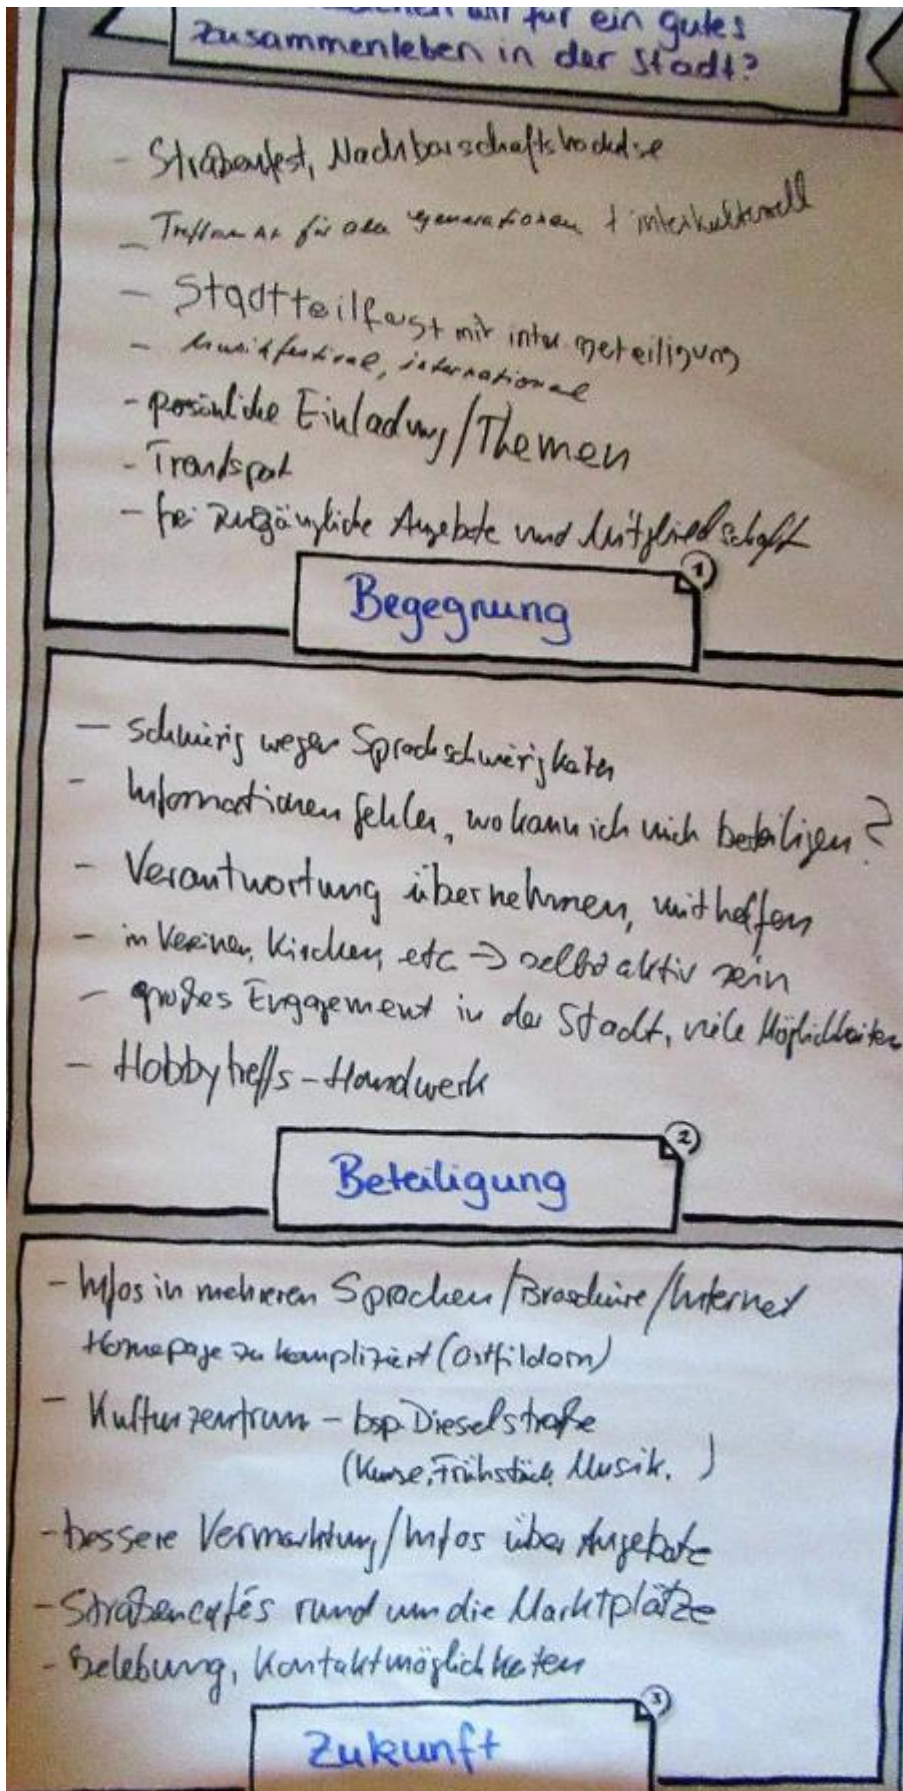 wir für ein gutes
Zusammenleben in der Stadt?
- Straßenfest, Nachbarschaftshocketse
- Treffpunkt für alle generationen + interkulturell
- Stadtteilfest mit inter Beteiligung
- Musikfestival, international
- persönliche Einladung / Themen
- Transport
- frei zugängliche Angebote und Mitgliedschaft
1
Begegnung
- schwierig wegen Sprachschwierigkeiten
- Informationen fehlen, wo kann ich mich beteiligen?
- Verantwortung übernehmen, mithelfen
- in Vereinen, Kirchen, etc → selbst aktiv sein
- großes Engagement in der Stadt, viele Möglichkeiten
- Hobbytreffs - Handwerk
2
Beteiligung
- Infos in mehreren Sprachen / Broschüre / Internet
Homepage zu kompliziert (Ostfildern)
- Kulturzentrum - bsp. Dieselstraße
(Kurse, Frühstück, Musik. )
- bessere Vermarktung / Infos über Angebote
- Straßencafés rund um die Marktplätze
- Belebung, Kontaktmöglichkeiten
3
Zukunft